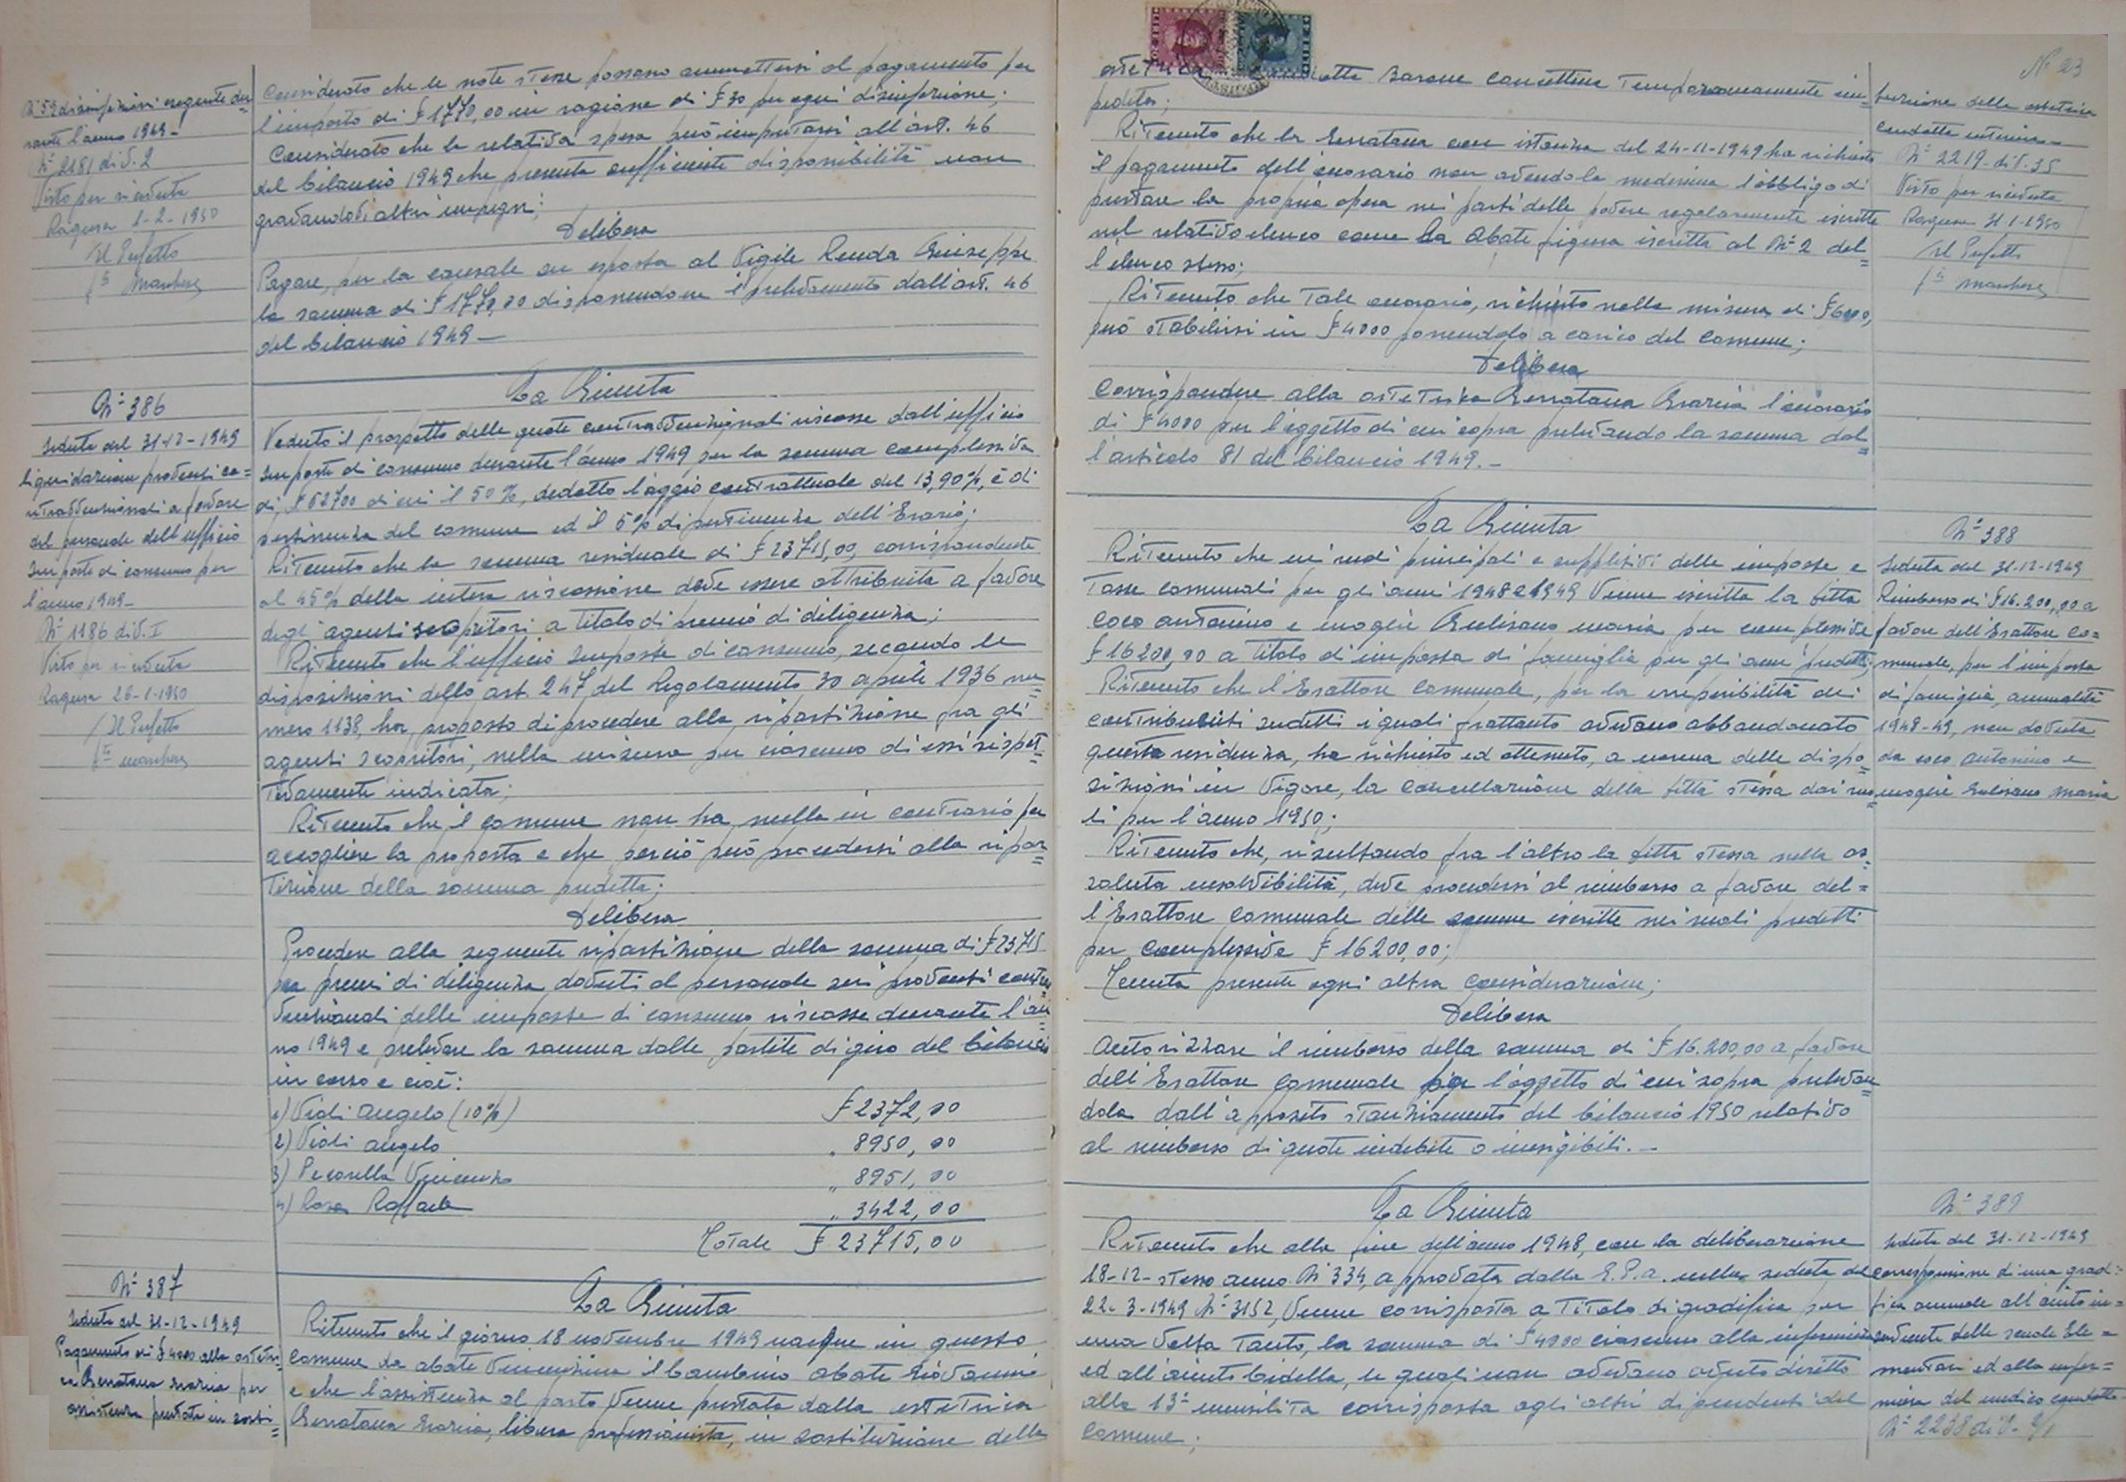 N. 59 disinfezioni eseguite du=
rante l'anno 1949 -
N. 2181 div. 2
Visto per ricevuta
Ragusa 1-2-1950
Il Prefetto
Considerato che le note stesse possono ammettersi al pagamento per
l'importo di £ 1770,00 in ragione di £ 30 per ogni disinfezione;
Considerato che la relativa spesa può imputarsi all'art. 46
del bilancio 1949 che presenta sufficiente disponibilità non
gravandovi altri impegni;
Delibera
Pagare, per la causale su esposta al Vigile Renda Giuseppe
la somma di £ 1770,00 disponendone il prelevamento dall'art. 46
del bilancio 1949 -
N. 386
Seduta del 31-12-1949
Liquidazione proventi co=
ntravvenzionali a favore
del personale dell'ufficio
Imposte di consumo per
l'anno 1949 -
N. 1186 div. I
Visto per ricevuta
Ragusa 26-1-1950
Il Prefetto
La Giunta
Veduto il prospetto delle quote contravvenzionali riscosse dall'ufficio
Imposte di consumo durante l'anno 1949 per la somma complessiva
di £ 52700 di cui il 50%, dedotto l'aggio contrattuale del 13,90%, è di
pertinenza del comune ed il 5% di pertinenza dell'Erario;
Ritenuto che la somma residuale di £ 23715,00, corrispondente
al 45% della intera riscossione deve essere attribuita a favore
degli agenti scopritori a titolo di premio di diligenza;
Ritenuto che l'ufficio Imposte di consumo, secondo le
disposizioni dello art. 247 del Regolamento 30 aprile 1936 nu=
mero 1138, ha proposto di procedere alla ripartizione fra gli
agenti scopritori, nella misura per ciascuno di essi rispet=
tivamente indicata;
Ritenuto che il comune non ha nulla in contrario per
accogliere la proposta e che perciò può procedersi alla ripar=
tizione della somma predetta;
Delibera
Procedere alla seguente ripartizione della somma di £ 23715
per premi di diligenza dovuti al personale sui proventi contra=
venzionali delle imposte di consumo riscosse durante l'an=
no 1949 e prelevare la somma dalle partite di giro del bilancio
in corso e cioè:
1) Violi Angelo (10%) £ 2372,00
2) Violi Angelo " 8950,00
3) Pecorella Vincenzo " 8951,00
4) Raffaele " 3422,00
Totale £ 23715,00
N. 387
Seduta del 31-12-1949
Pagamento di £ 4000 alla ostetri=
ca Serratana Maria per
assistenza prestata in sosti=
La Giunta
Ritenuto che il giorno 18 novembre 1949 nacque in questo
comune da Abate Vincenzina il bambino Abate Giovanni
e che l'assistenza al parto venne prestata dalla ostetrica
Serratana Maria, libera professionista, in sostituzione della
N. 23
ostetrica condotta Barone Concettina temporaneamente im=
pedita;
Ritenuto che la Serratana con istanza del 24-11-1949 ha richiesto
il pagamento dell'onorario non avendo la medesima l'obbligo di
prestare la propria opera nei parti delle povere regolarmente iscritte
nel relativo elenco come la Abate figura iscritta al N. 2 del=
l'elenco stesso;
Ritenuto che tale onorario, richiesto nella misura di £ 6000,
può stabilirsi in £ 4000 ponendolo a carico del comune;
Delibera
Corrispondere alla ostetrica Serratana Maria l'onorario
di £ 4000 per l'oggetto di cui sopra prelevando la somma dal=
l'articolo 81 del bilancio 1949. -
tuzione della ostetrica
condotta interina -
N. 2219 div. 35
Visto per ricevuta
Ragusa 31-1-1950
Il Prefetto
La Giunta
Ritenuto che nei ruoli principali e suppletivi delle imposte e
tasse comunali per gli anni 1948 e 1949 venne iscritta la ditta
Coco Antonino e moglie Giulisano Maria per complessive
£ 16200,00 a titolo di imposta di famiglia per gli anni predetti;
Ritenuto che l'Esattore Comunale, per la irreperibilità dei
contribuenti sudetti i quali frattanto avevano abbandonato
questa residenza, ha richiesto ed ottenuto, a norma delle dispo=
sizioni in vigore, la cancellazione della ditta stessa dai ruo=
li per l'anno 1950;
Ritenuto che, risultando fra l'altro la ditta stessa nella as=
soluta insolvibilità, deve procedersi al rimborso a favore del=
l'Esattore Comunale delle somme iscritte nei ruoli predetti
per complessive £ 16200,00;
Tenuta presente ogni altra considerazione;
Delibera
Autorizzare il rimborso della somma di £ 16.200,00 a favore
dell'Esattore Comunale per l'oggetto di cui sopra prelevan=
dola dall'apposito stanziamento del bilancio 1950 relativo
al rimborso di quote indebite o inesigibili. -
N. 388
Seduta del 31-12-1949
Rimborso di £ 16.200,00 a
favore dell'Esattore Co=
munale, per l'imposta
di famiglia, annualità
1948-49, non dovuta
da Coco Antonino e
moglie Giulisano Maria
La Giunta
Ritenuto che alla fine dell'anno 1948, con la deliberazione
18-12- stesso anno N. 334, approvata dalla G.P.A. nella seduta del
22-3-1949 N. 3152, venne corrisposta a titolo di gratifica per
una volta tanto, la somma di £ 4000 ciascuno alla infermiera
ed all'aiuto bidella, le quali non avevano avuto diritto
alla 13a mensilità corrisposta agli altri dipendenti del
comune;
N. 389
Seduta del 31-12-1949
Corresponsione di una grati=
fica annuale all'aiuto in=
serviente delle scuole Ele=
mentari ed alla infer=
miera del medico condotto
N. 2238 div.